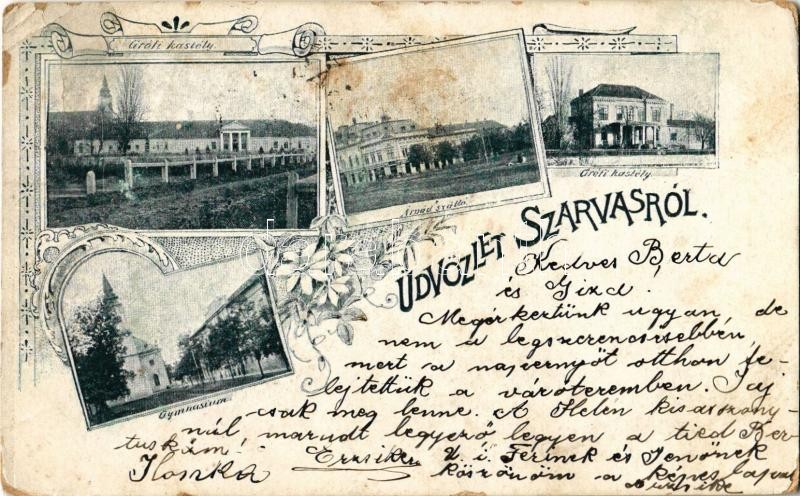 Grófi kastély.
Árpád szálló.
Grófi kastély.
Gymnasium.
ÜDVÖZLET SZARVASRÓL.
Kedves Berta
és Giza!
Megérkeztünk ugyan, de
nem a legszerencsésebben,
mert a napernyőt otthon fe-
lejtettük a váróteremben. Jaj
csak meg lenne. A Helen kisasszony-
nál maradt legyező legyen a tied Ber-
tuskám!
Ilonka
U. i. Férinek és Jenőnek
köszönöm a képes lapot
Erzsike